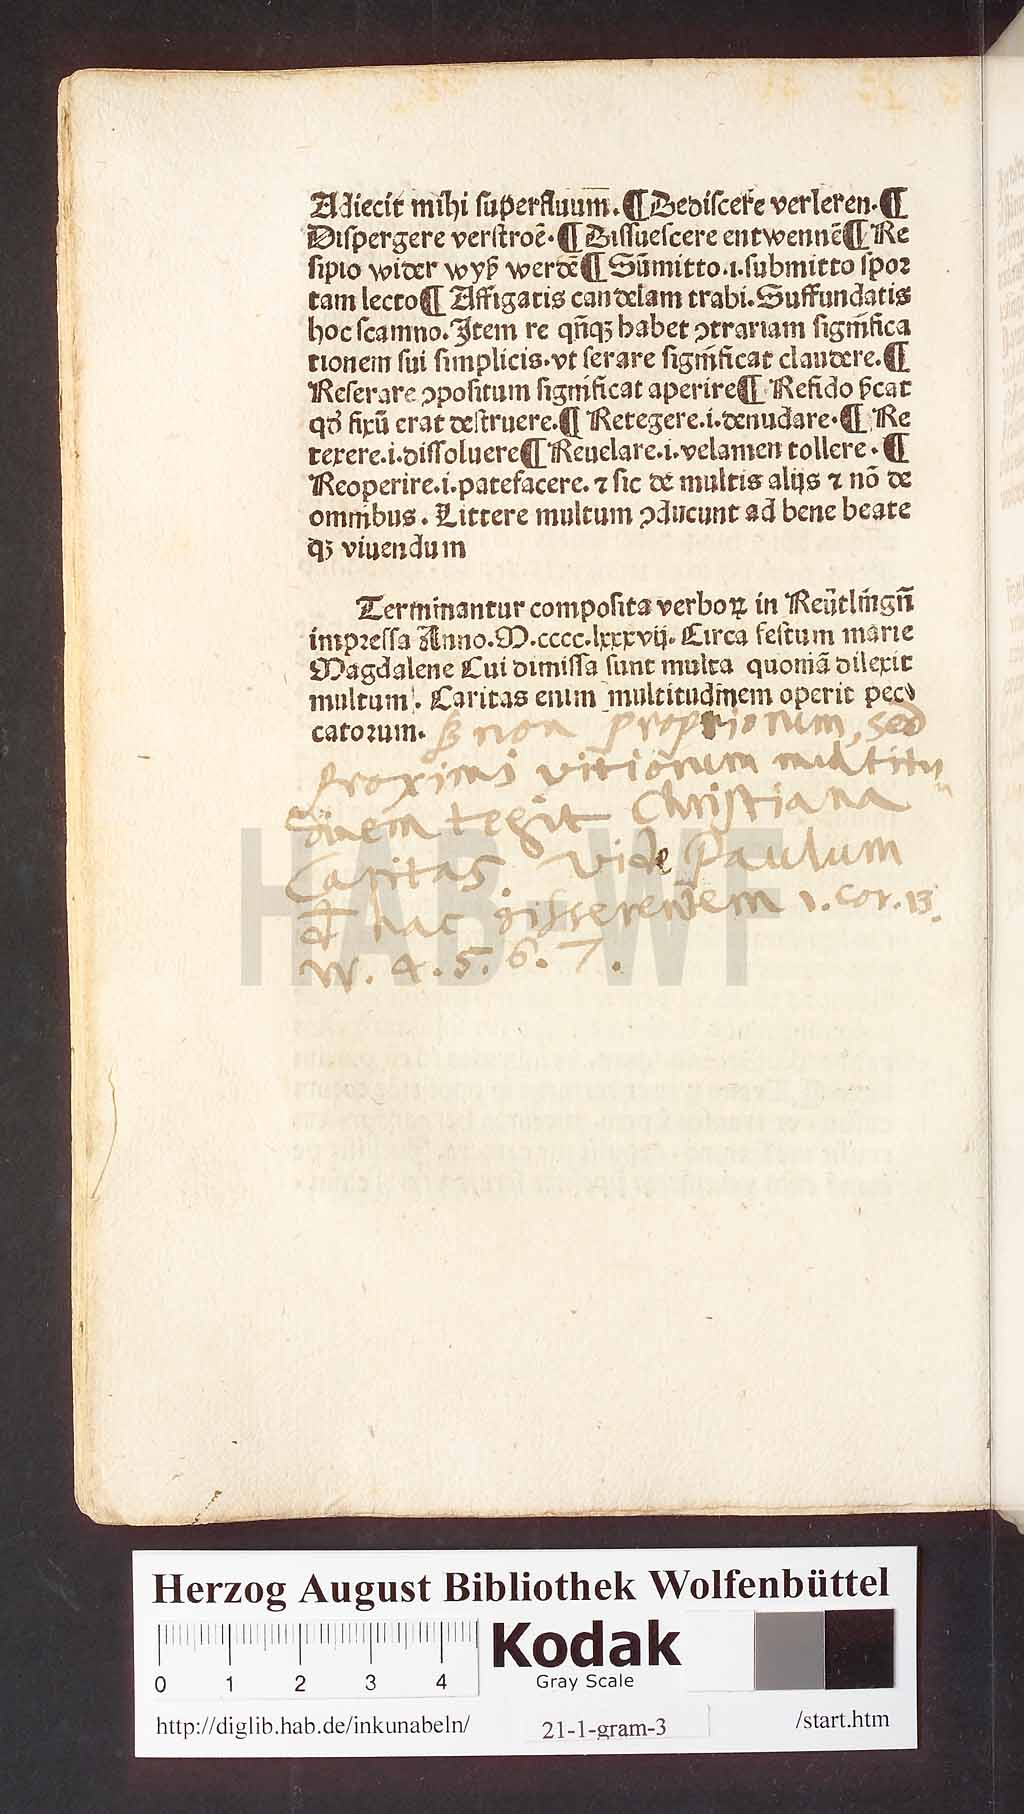 Adiecit mihi superfluum̄. ¶ Dediscere verleren. ¶
Dispergere verstroē. ¶ Dissuescere entwennē ¶ Re
sipio wider wyß werdē ¶ Sūmitto .i. submitto spor
tam lecto ¶ Affigatis candelam trabi. Suffundatis
hoc scamno. Item re qn̄qꝫ habet ꝯtrariam significa
tionem sui simplicis. vt serare significat claudere. ¶
Reserare ꝯpositum significat aperire ¶ Refido
fixū erat destruere. ¶ Retegere .i. denudare. ¶ Re
texere .i. dissoluere ¶ Reuelare .i. velamen tollere. ¶
Reoperire .i. patefacere. ⁊ sic de multis alijs ⁊ nō de
omnibus. Littere multum ꝯducunt ad bene beate
qꝫ viuendum
Terminantur composita verboꝝ in Reütlingn̄
impressa Anno. M. cccc. lxxxvij. Circa festum marie
Magdalene Cui dimissa sunt multa quoniā dilexit
multum. Caritas enim multitudinem operit pec
catorum. non propriorum, sed
proximi vitiorum multitu
dinem tegit Christiana
Caritas. Vide Paulum
hac disserentem 1. Cor. 13.
vv. 4. 5. 6. 7.
HAB-WF
Herzog August Bibliothek Wolfenbüttel
0 1 2 3 4
Kodak
Gray Scale
http://diglib.hab.de/inkunabeln/ 21-1-gram-3 /start.htm